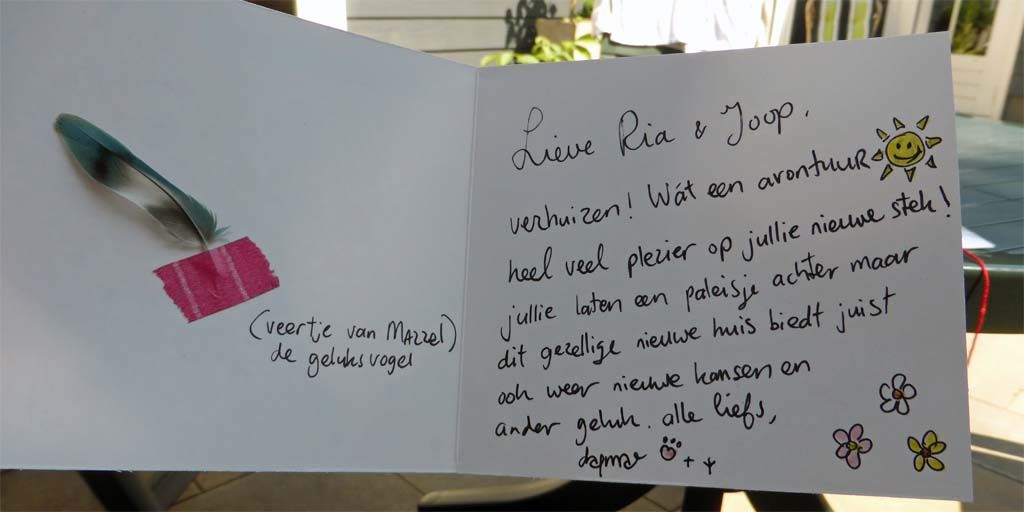 (veertje van Mazzel)
de geluksvogel
Lieve Ria & Joop,
verhuizen! Wát een avontuur
heel veel plezier op jullie nieuwe stek!
jullie laten een paleisje achter maar
dit gezellige nieuwe huis biedt juist
ook weer nieuwe kansen en
ander geluk. alle liefs,
dagmar